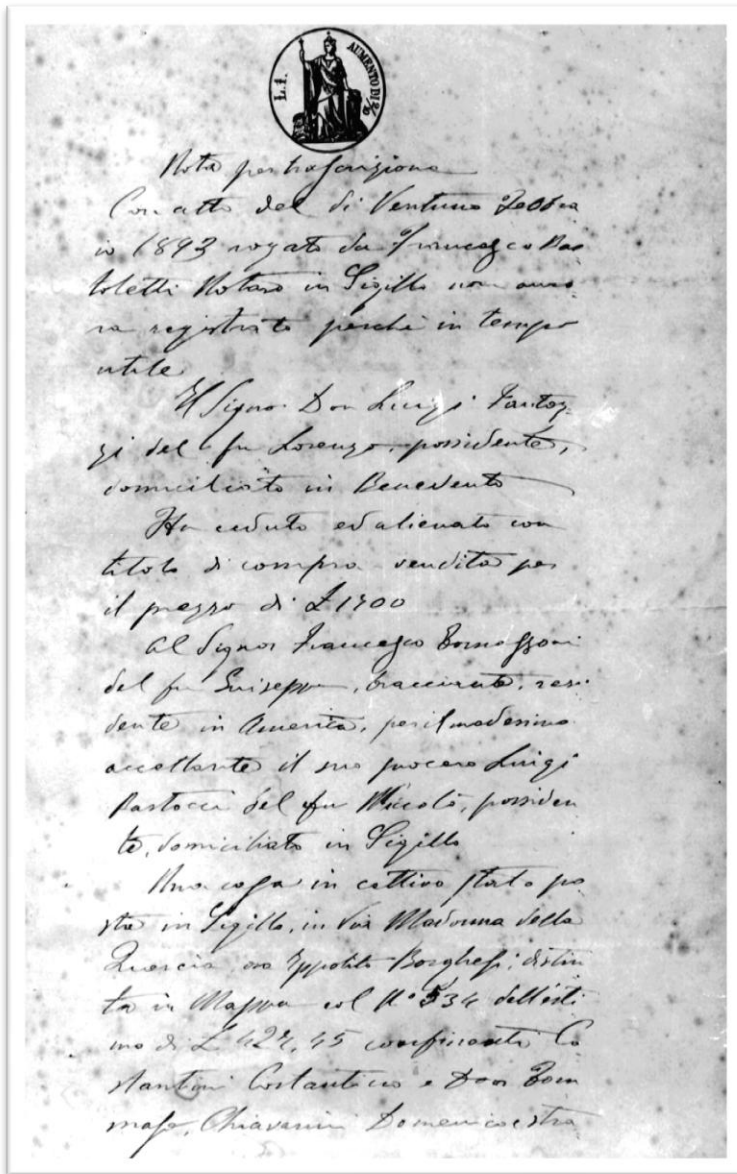 L. 1. AUMENTO DI 2/10
Nota per trascrizione
Con atto del dì Ventuno Febbra
io 1893 rogato da Francesco Bar
toletti Notaro in Sigillo non anco
ra registrato perchè in tempo
utile
Il Signor Don Luigi Fantoz
zi del fu Lorenzo, possidente,
domiciliato in Benevento
Ha ceduto ed alienato con
titolo di compra vendita per
il prezzo di £ 1900
Al Signor Francesco Tomassoni
del fu Guiseppe, bracciante, resi
dente in America, per il medesimo
accettante il suo suocero Luigi
Bartocci del fu Niccolò, possiden
te, domiciliato in Sigillo
Una casa in cattivo stato po
sta in Sigillo, in Via Madonna della
Quercia, ora Ippolito Borghesi, distin
ta in Mappa col N° 534 dell'esti
mo di £ 427,45 confinanti Co
stantini Costantino e Don Tom
maso, Chiavarini Domenico, stra